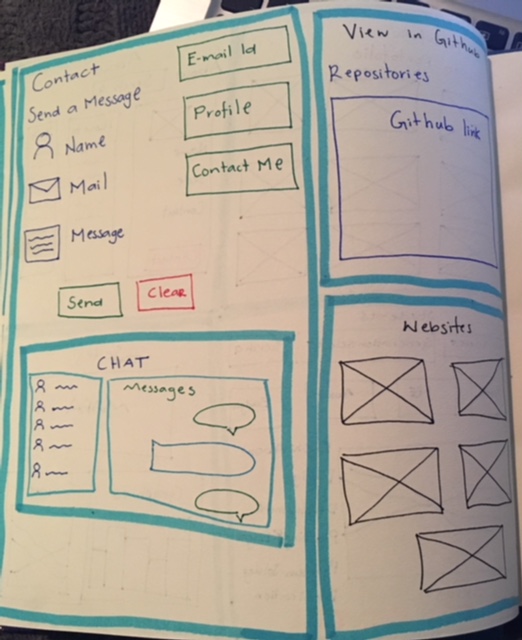 Contact
Send a Message
Name
Mail
Message
Send
Clear
E-mail Id
Profile
Contact Me
CHAT
Messages
View in Github
Repositories
Github link
Websites